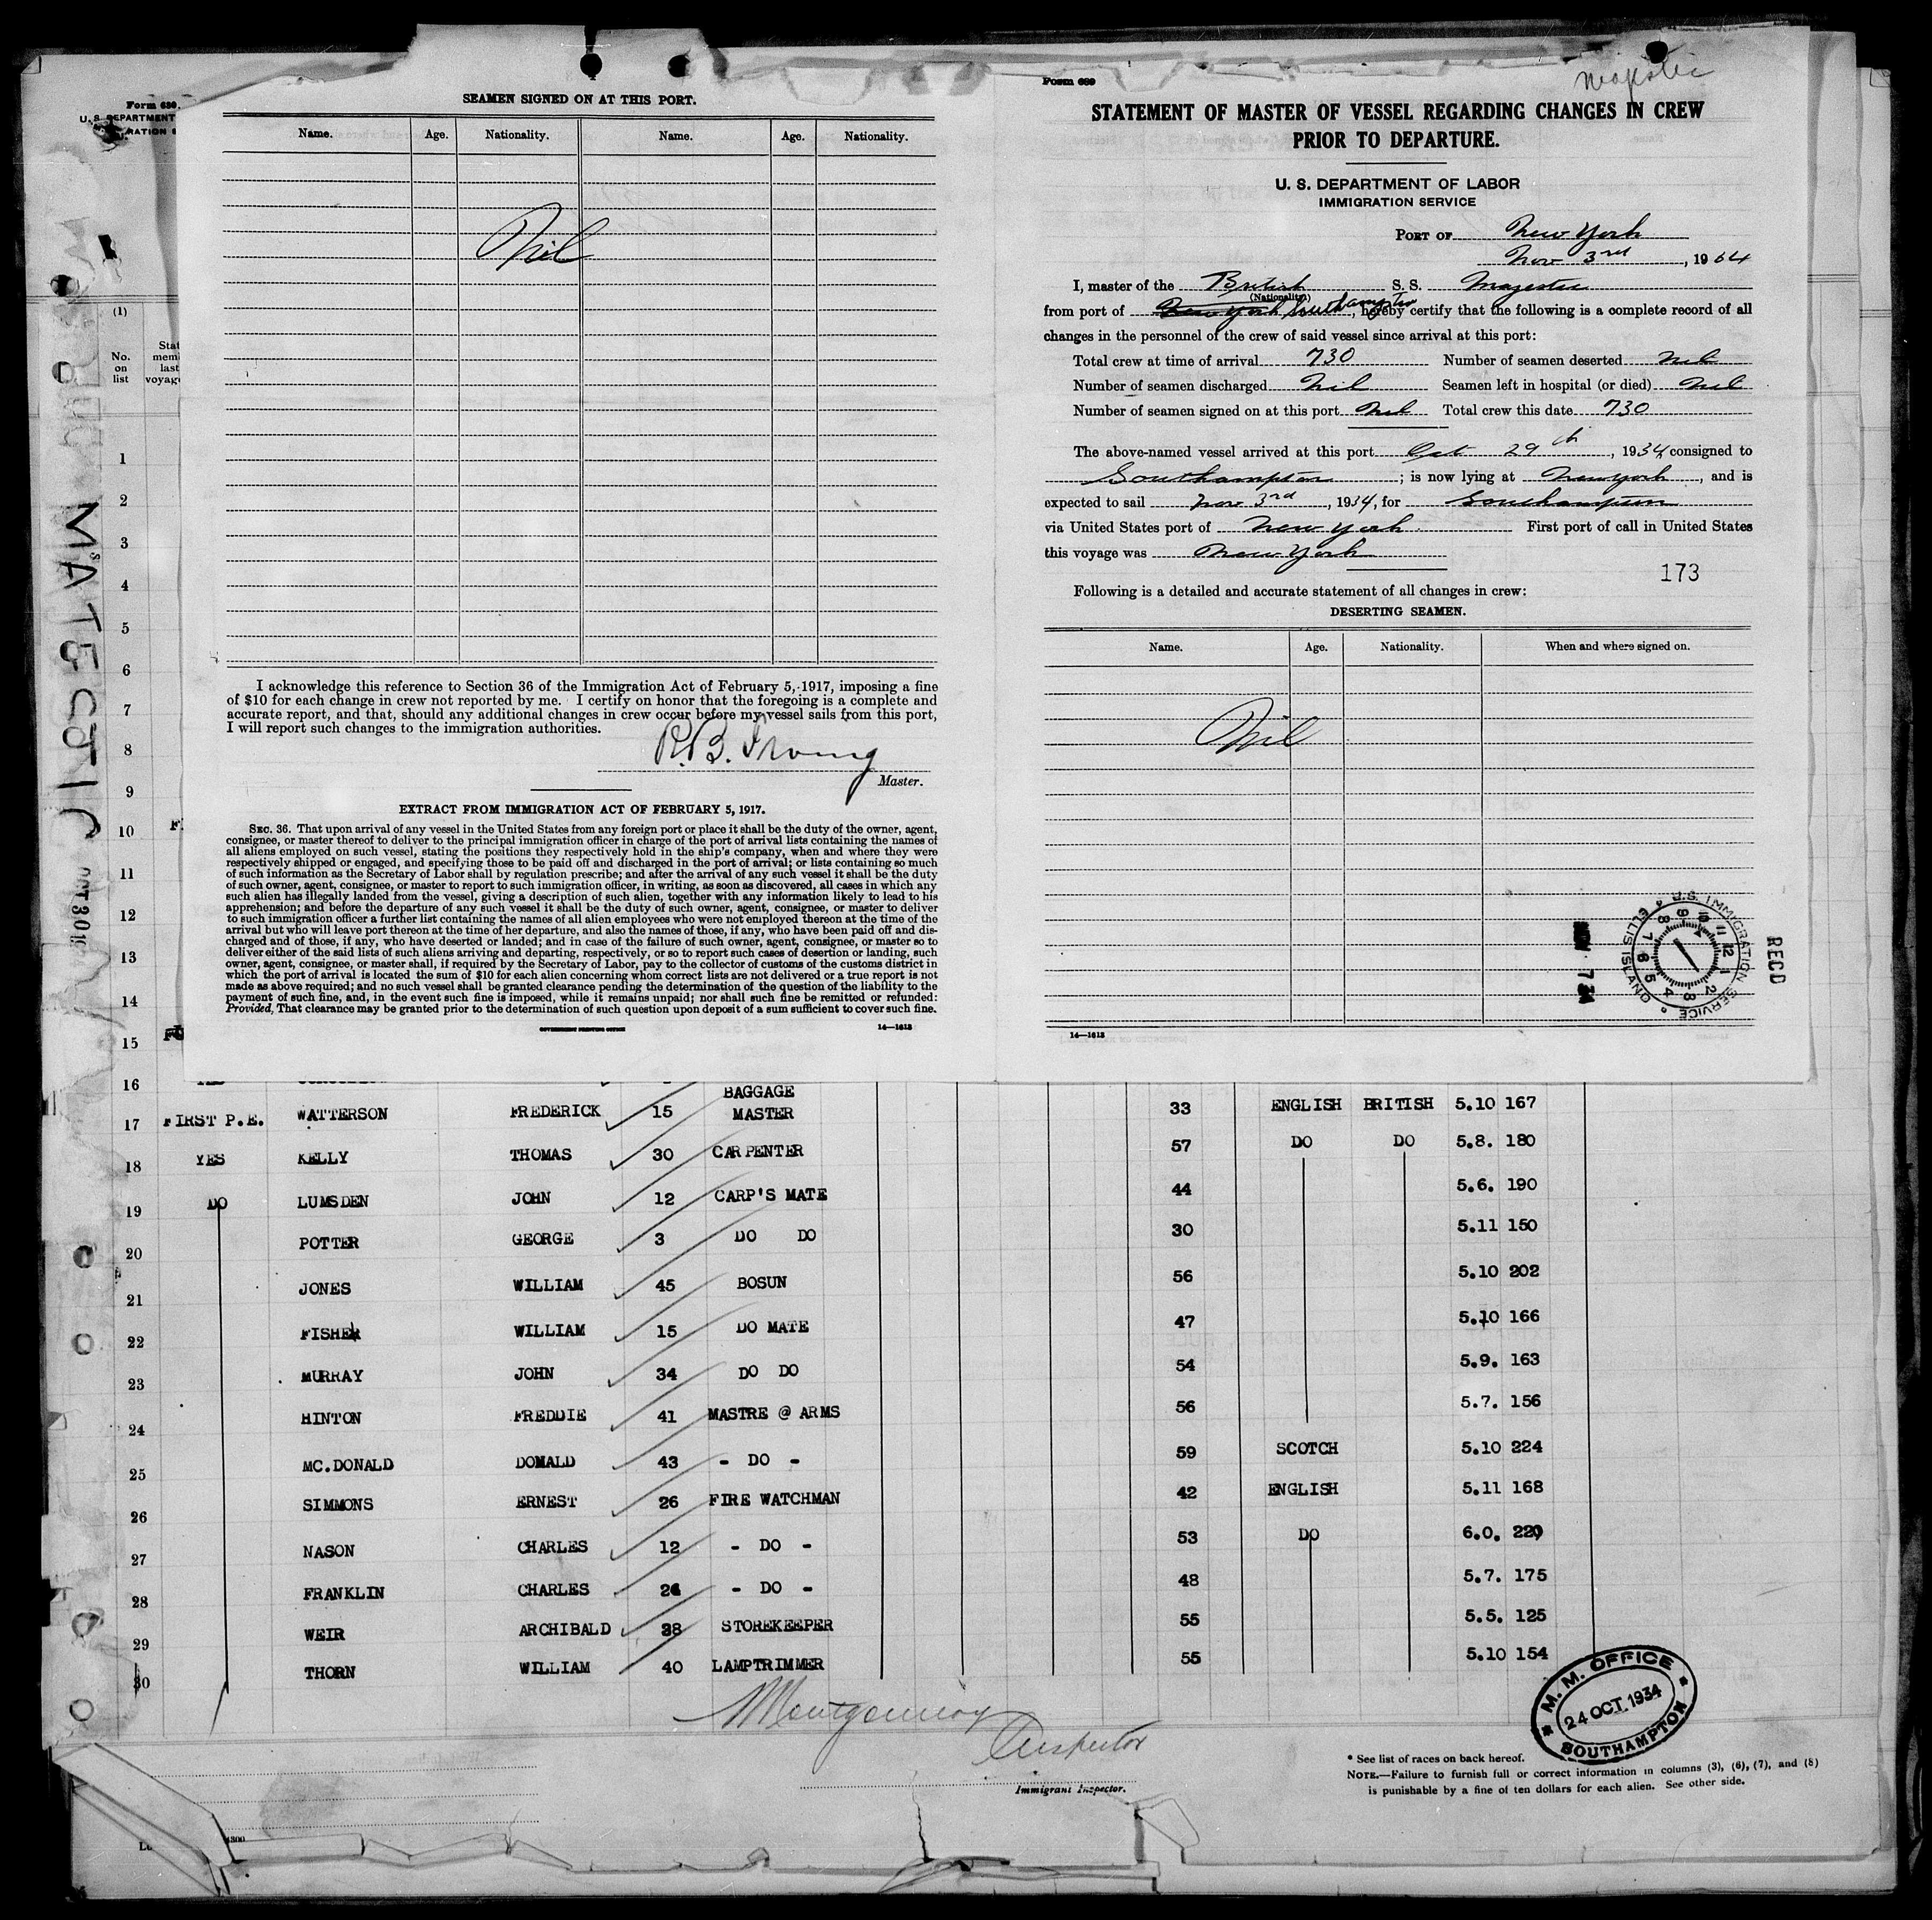 Form 680.
U. S. DEPARTMENT
(1)
No. on list
MAJESTIC
OCT 30 19
SEAMEN SIGNED ON AT THIS PORT.
Name. Age. Nationality. Name. Age. Nationality.
Nil
I acknowledge this reference to Section 36 of the Immigration Act of February 5, 1917, imposing a fine
of $10 for each change in crew not reported by me. I certify on honor that the foregoing is a complete and
accurate report, and that, should any additional changes in crew occur before my vessel sails from this port,
I will report such changes to the immigration authorities.
R.B. Irving
Master.
EXTRACT FROM IMMIGRATION ACT OF FEBRUARY 5, 1917.
SEC. 36. That upon arrival of any vessel in the United States from any foreign port or place it shall be the duty of the owner, agent,
consignee, or master thereof to deliver to the principal immigration officer in charge of the port of arrival lists containing the names of
all aliens employed on such vessel, stating the positions they respectively hold in the ship's company, when and where they were
respectively shipped or engaged, and specifying those to be paid off and discharged in the port of arrival; or lists containing so much
of such information as the Secretary of Labor shall by regulation prescribe; and after the arrival of any such vessel it shall be the duty
of such owner, agent, consignee, or master to report to such immigration officer, in writing, as soon as discovered, all cases in which any
such alien has illegally landed from the vessel, giving a description of such alien, together with any information likely to lead to his
apprehension; and before the departure of any such vessel it shall be the duty of such owner, agent, consignee, or master to deliver
to such immigration officer a further list containing the names of all alien employees who were not employed thereon at the time of the
arrival but who will leave port thereon at the time of her departure, and also the names of those, if any, who have been paid off and dis-
charged and of those, if any, who have deserted or landed; and in case of the failure of such owner, agent, consignee, or master so to
deliver either of the said lists of such aliens arriving and departing, respectively, or so to report such cases of desertion or landing, such
owner, agent, consignee, or master shall, if required by the Secretary of Labor, pay to the collector of customs of the customs district in
which the port of arrival is located the sum of $10 for each alien concerning whom correct lists are not delivered or a true report is not
made as above required; and no such vessel shall be granted clearance pending the determination of the question of the liability to the
payment of such fine, and, in the event such fine is imposed, while it remains unpaid; nor shall such fine be remitted or refunded:
Provided, That clearance may be granted prior to the determination of such question upon deposit of a sum sufficient to cover such fine.
GOVERNMENT PRINTING OFFICE 14—1613
Form 689
Majestic
STATEMENT OF MASTER OF VESSEL REGARDING CHANGES IN CREW
PRIOR TO DEPARTURE.
U. S. DEPARTMENT OF LABOR
IMMIGRATION SERVICE
PORT OF New York
Nov 3rd, 1934
I, master of the British S. S. Majestic
(Nationality)
from port of New York Southampton, hereby certify that the following is a complete record of all
changes in the personnel of the crew of said vessel since arrival at this port:
Total crew at time of arrival 730 Number of seamen deserted Nil
Number of seamen discharged Nil Seamen left in hospital (or died) Nil
Number of seamen signed on at this port Nil Total crew this date 730
The above-named vessel arrived at this port Oct 29th, 1934, consigned to
Southampton; is now lying at New York, and is
expected to sail Nov 3rd, 1934, for Southampton
via United States port of New York First port of call in United States
this voyage was New York
173
Following is a detailed and accurate statement of all changes in crew:
DESERTING SEAMEN.
Name. Age. Nationality. When and where signed on.
Nil
NOV 7 34
U.S. IMMIGRATION SERVICE ELLIS ISLAND
RECD
14—1613
1
2
3
4
5
6
7
8
9
10
11
12
13
14
15
16
17 FIRST P.E. WATTERSON FREDERICK 15 BAGGAGE MASTER 33 ENGLISH BRITISH 5.10 167
18 YES KELLY THOMAS 30 CARPENTER 57 DO DO 5.8. 180
19 DO LUMSDEN JOHN 12 CARP'S MATE 44 5.6. 190
20 POTTER GEORGE 3 DO DO 30 5.11 150
21 JONES WILLIAM 45 BOSUN 56 5.10 202
22 FISHER WILLIAM 15 DO MATE 47 5.10 166
23 MURRAY JOHN 34 DO DO 54 5.9. 163
24 HINTON FREDDIE 41 MASTRE @ ARMS 56 5.7. 156
25 MC.DONALD DONALD 43 - DO - 59 SCOTCH 5.10 224
26 SIMMONS ERNEST 26 FIRE WATCHMAN 42 ENGLISH 5.11 168
27 NASON CHARLES 12 - DO - 53 DO 6.0. 220
28 FRANKLIN CHARLES 26 - DO - 48 5.7. 175
29 WEIR ARCHIBALD 38 STOREKEEPER 55 5.5. 125
30 THORN WILLIAM 40 LAMPTRIMMER 55 5.10 154
Montgomery
Inspector
Immigrant Inspector.
M. M. OFFICE
24 OCT. 1934
SOUTHAMPTON
* See list of races on back hereof.
NOTE.—Failure to furnish full or correct information in columns (3), (6), (7), and (8)
is punishable by a fine of ten dollars for each alien. See other side.